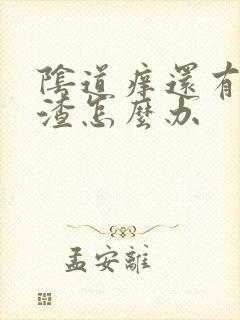 陰道痒還有
渣怎麼办
孟安離